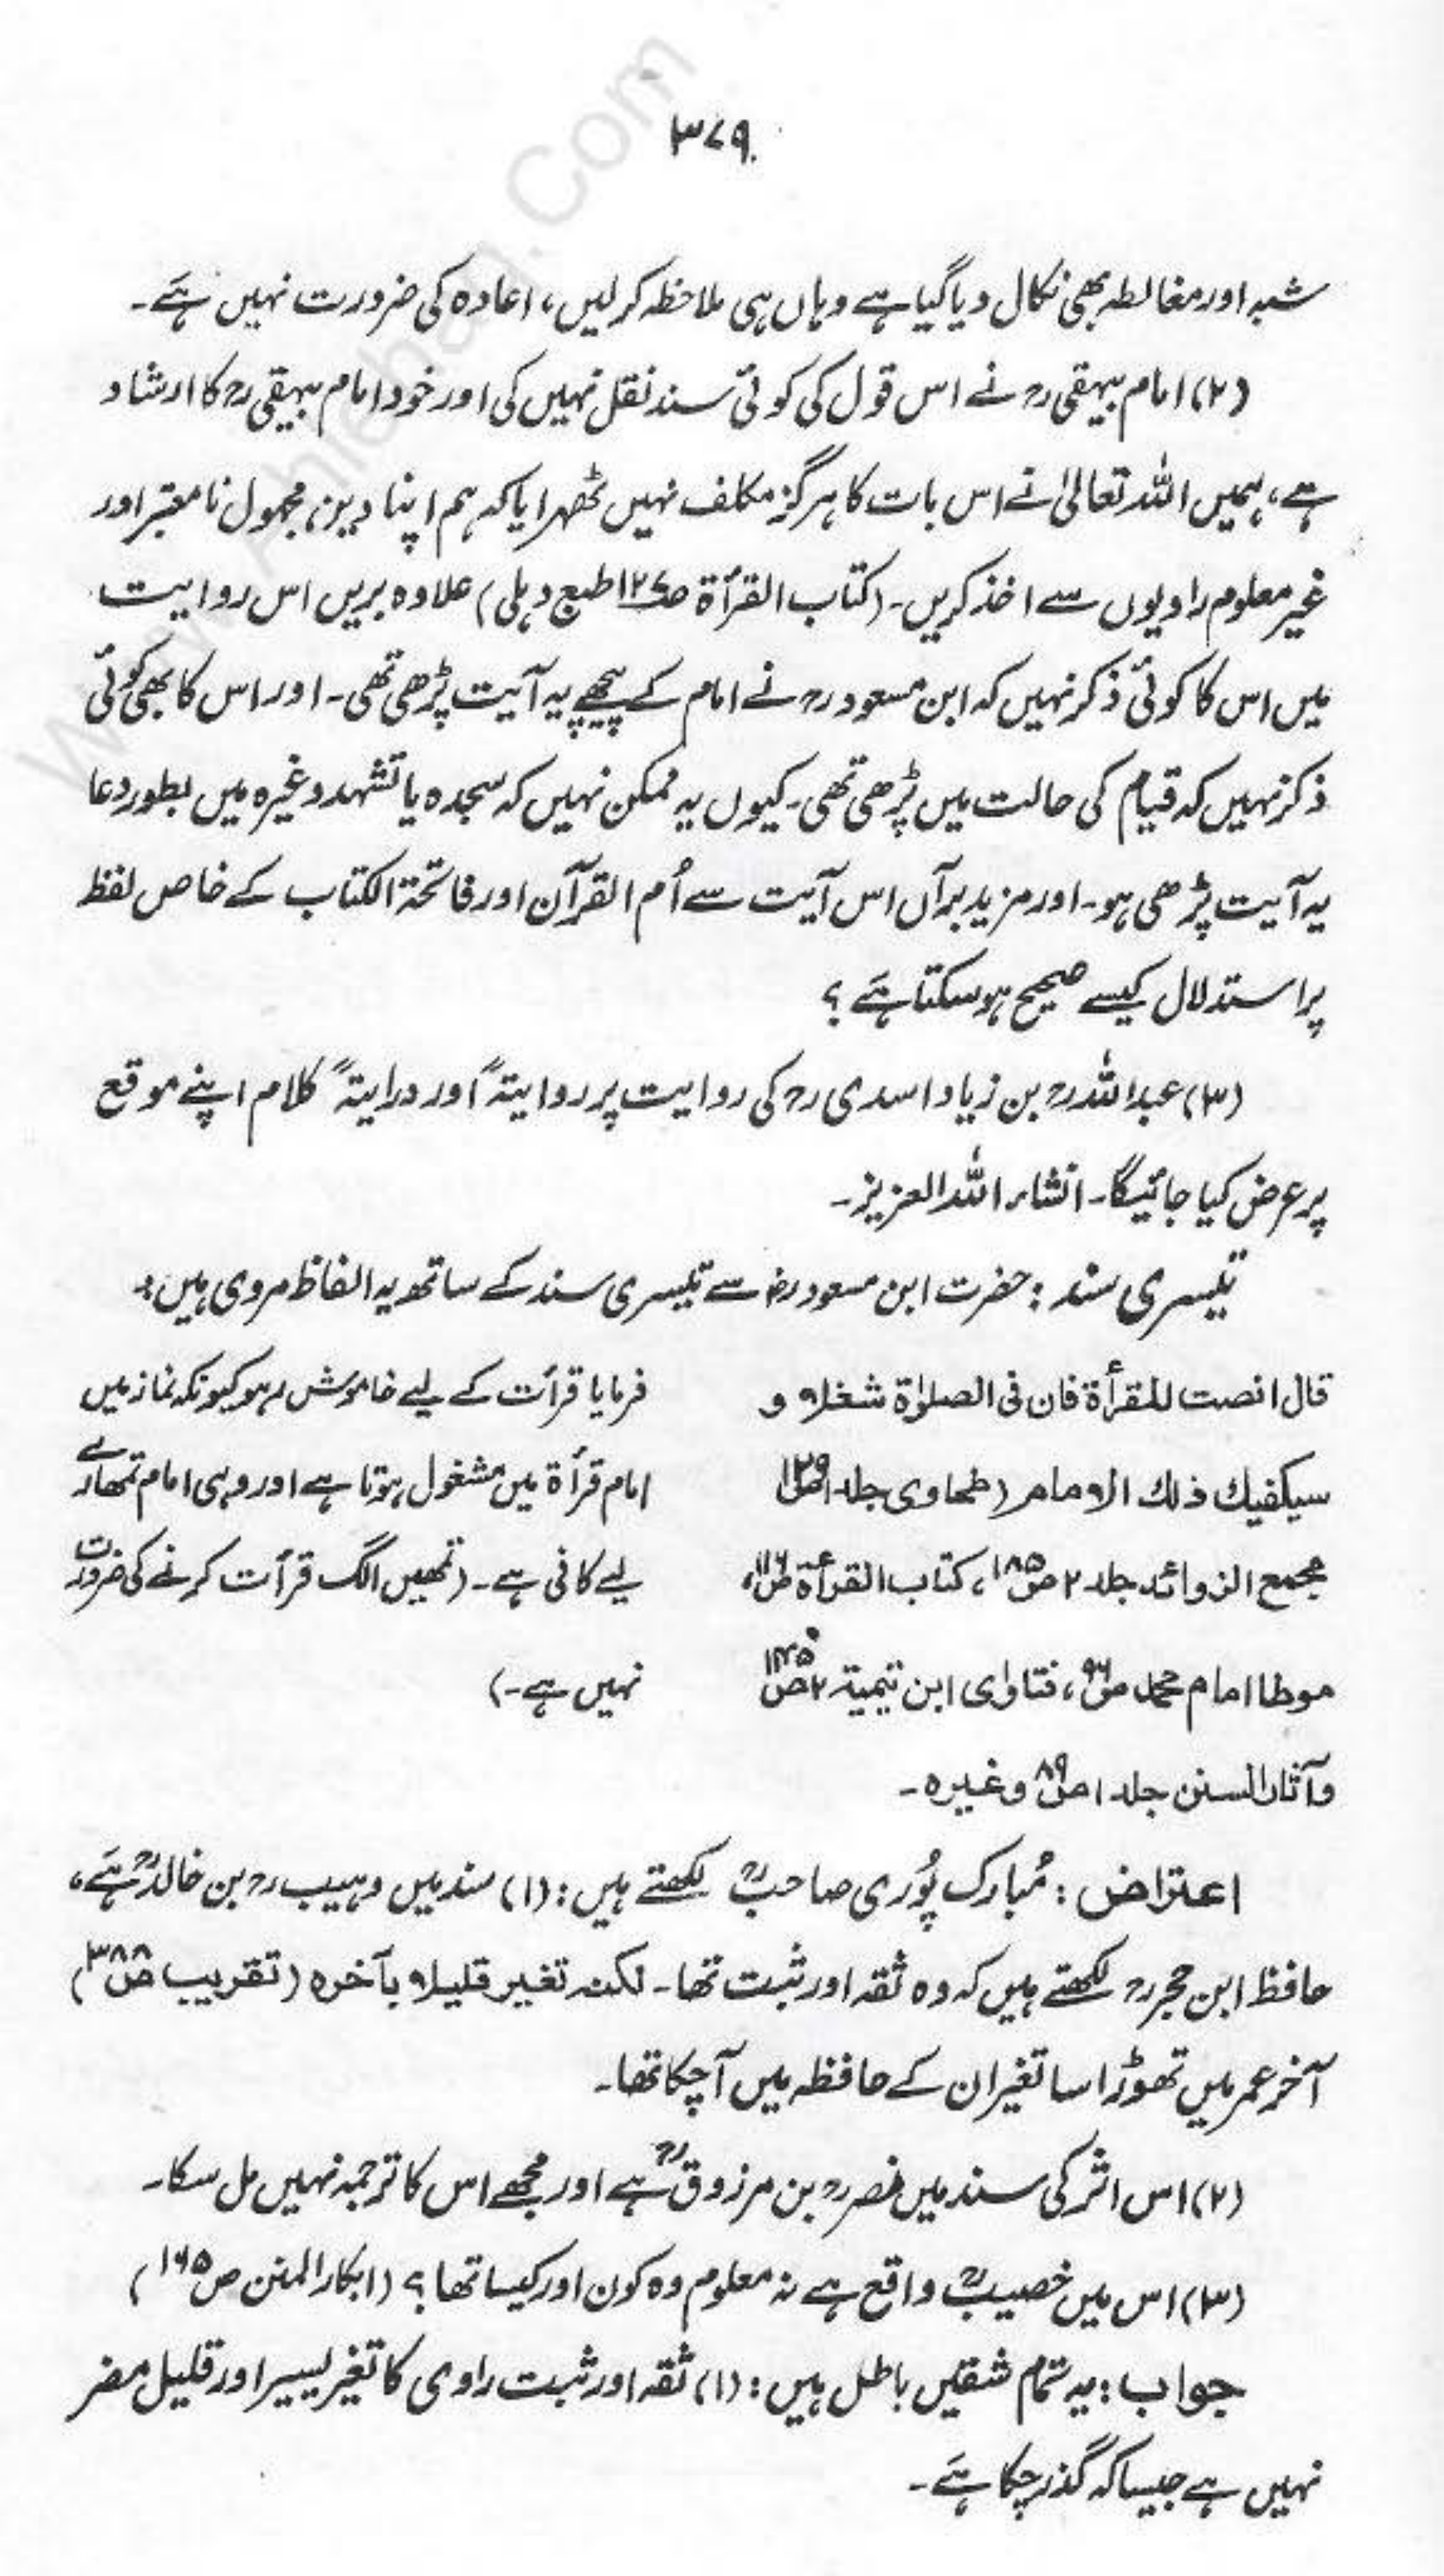 ۳۷۹
شبہ اور مغالطہ بھی نکال دیا گیا ہے وہاں ہی ملاحظہ کرلیں، اعادہ کی ضرورت نہیں ہے۔
(۲) امام بیہقی رح نے اس قول کی کوئی سند نقل نہیں کی اور خود امام بیہقی رح کا ارشاد
ہے، ہمیں اللہ تعالیٰ نے اس بات کا ہرگز مکلف نہیں ٹھہرایا کہ ہم اپنا دین مجہول نامعتبر اور
غیر معلوم راویوں سے اخذ کریں۔ (کتاب القرأۃ ص۱۲۷ طبع دہلی) علاوہ بریں اس روایت
میں اس کا کوئی ذکر نہیں کہ ابن مسعود رض نے امام کے پیچھے یہ آیت پڑھی تھی۔ اور اس کا بھی کوئی
ذکر نہیں کہ قیام کی حالت میں پڑھی تھی۔ کیوں یہ ممکن نہیں کہ سجدہ یا تشہد وغیرہ میں بطور دعا
یہ آیت پڑھی ہو۔ اور مزید برآں اس آیت سے اُم القرآن اور فاتحۃ الکتاب کے خاص لفظ
پر استدلال کیسے صحیح ہوسکتا ہے ؟
(۳) عبداللہ رح بن زیاد اسدی رح کی روایت پر روایتہً اور درایتہً کلام اپنے موقع
پر عرض کیا جائیگا۔ انشاء اللہ العزیز۔
تیسری سند : حضرت ابن مسعود رض سے تیسری سند کے ساتھ یہ الفاظ مروی ہیں :
قال انصت للقرأۃ فان فی الصلوٰۃ شغلا و
سیکفیك ذلك الامام (طحاوی جلد ۱ ص۱۲۹
مجمع الزوائد جلد ۲ ص۱۸۵، کتاب القرأۃ ص۱۱۶،
موطا امام محمد ص۹۶، فتاوٰی ابن تیمیۃ ۲ ص۱۴۵
وآثار السنن جلد ۱ ص۸۹ وغیرہ۔
فرمایا قرأت کے لیے خاموش رہو کیونکہ نماز میں
امام قرأۃ میں مشغول ہوتا ہے اور وہی امام تمھارے
لیے کافی ہے۔ (تمھیں الگ قرأت کرنے کی ضرورت
نہیں ہے۔)
اعتراض : مُبارک پُوری صاحبؒ لکھتے ہیں : (۱) سند میں وہیب رح بن خالدؒ ہے،
حافظ ابن حجر رح لکھتے ہیں کہ وہ ثقہ اور ثبت تھا۔ لکنہ تغیر قلیلا بآخرہ (تقریب ص۳۸۸)
آخر عمر میں تھوڑا سا تغیر ان کے حافظہ میں آچکا تھا۔
(۲) اس اثر کی سند میں نصر رح بن مرزوقؒ ہے اور مجھے اس کا ترجمہ نہیں مل سکا۔
(۳) اس میں خصیبؒ واقع ہے نہ معلوم وہ کون اور کیسا تھا؟ (ابکار المنن ص۱۶۵)
جواب : یہ تمام شقیں باطل ہیں : (۱) ثقہ اور ثبت راوی کا تغیر یسیر اور قلیل مضر
نہیں ہے جیسا کہ گذر چکا ہے۔